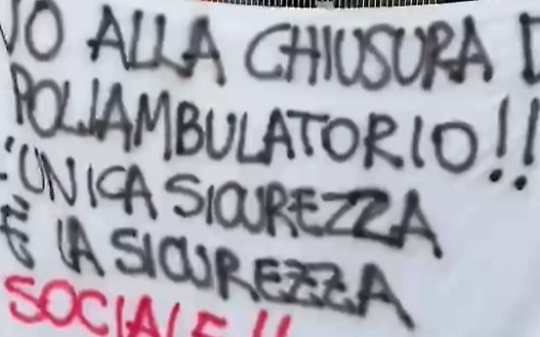 NO ALLA CHIUSURA D
POLIAMBULATORIO!!
L'UNICA SICUREZZA
È LA SICUREZZA
SOCIALE!!